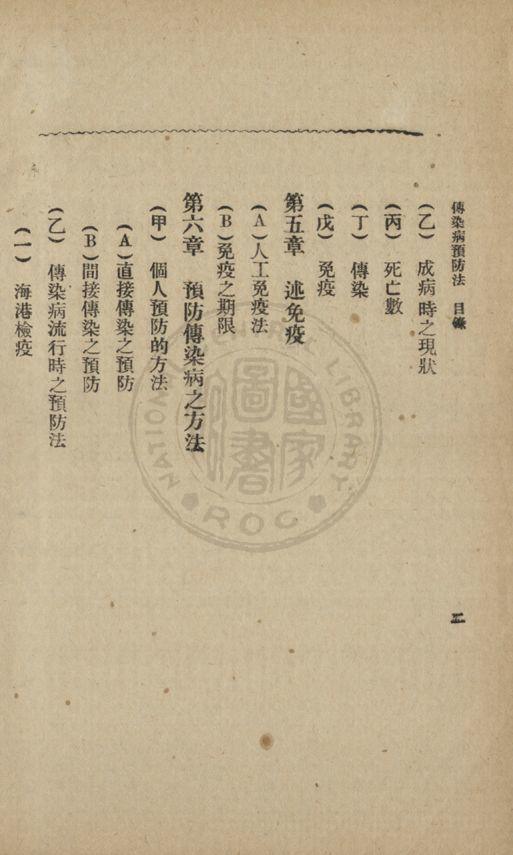 傳染病預防法 目錄
二
(乙) 成病時之現狀
(丙) 死亡數
(丁) 傳染
(戊) 免疫
第五章 述免疫
(A)人工免疫法
(B)免疫之期限
第六章 預防傳染病之方法
(甲) 個人預防的方法
(A)直接傳染之預防
(B)間接傳染之預防
(乙) 傳染病流行時之預防法
(一) 海港檢疫
國家圖書
NATIONAL CENTRAL LIBRARY
ROC